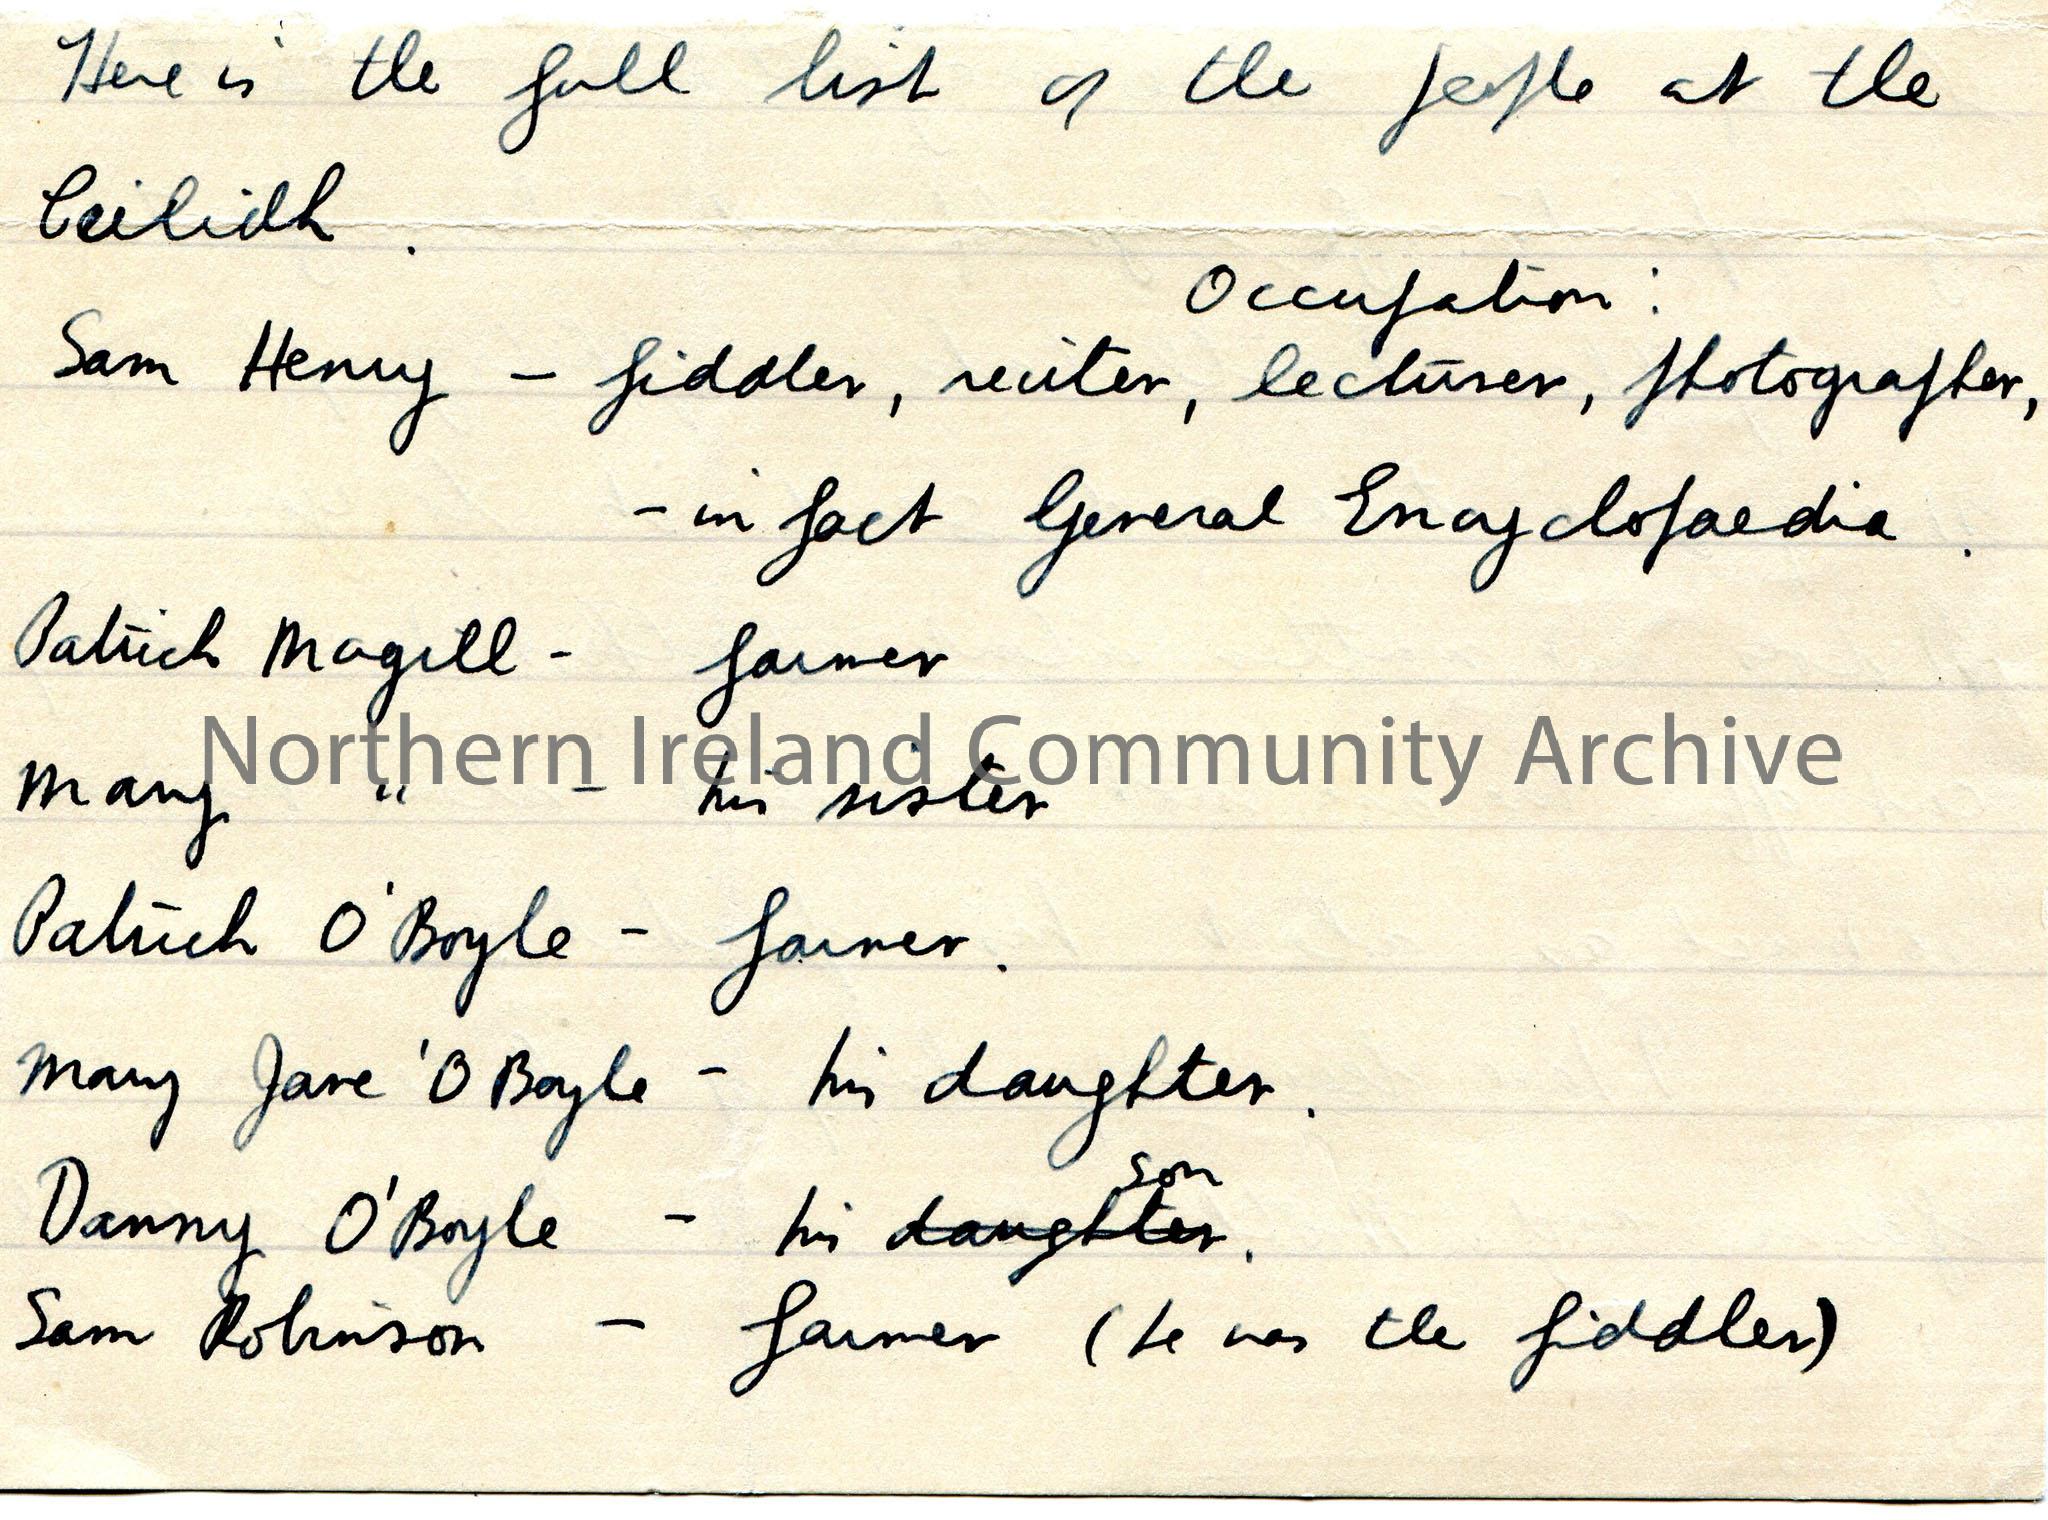 Here is the full list of the people at the
Ceilidh.
Occupation:
Sam Henry - fiddler, reciter, lecturer, photographer,
- in fact General Encyclopaedia.
Patrick Magill - farmer
Northern Ireland Community Archive
Mary " - his sister
Patrick O'Boyle - farmer.
Mary Jane 'O Boyle - his daughter.
son
Danny O'Boyle - his daughter.
Sam Robinson - farmer (he was the fiddler)